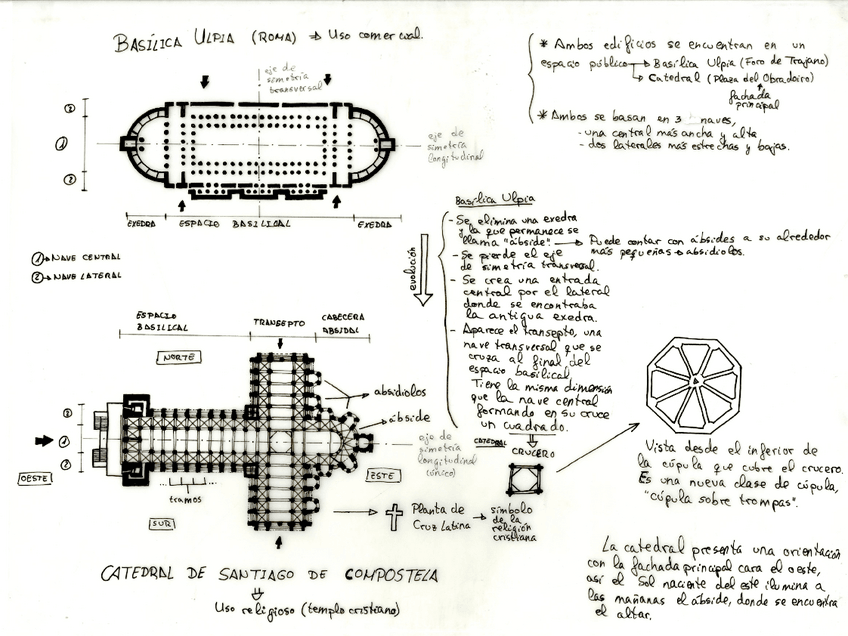 BASÍLICA ULPIA (ROMA) ⇒ Uso comercial.
eje de
simetría
transversal
②
①
②
eje de
simetría
longitudinal
EXEDRA
ESPACIO BASILICAL
EXEDRA
①→ NAVE CENTRAL
②→ NAVE LATERAL
* Ambos edificios se encuentran en un
espacio público → Basílica Ulpia (Foro de Trajano)
↳ Catedral (Plaza del Obradoiro)
fachada
principal
* Ambos se basan en 3 naves,
- una central más ancha y alta
- dos laterales más estrechas y bajas.
evolución
Basílica Ulpia
- Se elimina una exedra
y la que permanece se
llama "ábside". → Puede contar con ábsides a su alrededor
más pequeños → absidiolos.
- Se pierde el eje
de simetría transversal.
- Se crea una entrada
central por el lateral
donde se encontraba
la antigua exedra.
- Aparece el transepto, una
nave transversal que se
cruza al final del
espacio basilical.
Tiene la misma dimensión
que la nave central
formando en su cruce
un cuadrado.
CATEDRAL
CRUCERO
ESPACIO
BASILICAL
TRANSEPTO
CABECERA
ABSIDAL
NORTE
absidiolos
ábside
②
①
②
eje de
simetría
longitudinal
(único)
OESTE
ESTE
tramos
SUR
Planta de
Cruz Latina
símbolo
de la
religión
cristiana
Vista desde el inferior de
la cúpula que cubre el crucero.
Es una nueva clase de cúpula,
"cúpula sobre trompas".
La catedral presenta una orientación
con la fachada principal cara el oeste,
así el Sol naciente del este ilumina a
las mañanas el ábside, donde se encuentra
el altar.
CATEDRAL DE SANTIAGO DE COMPOSTELA
Uso religioso (templo cristiano)